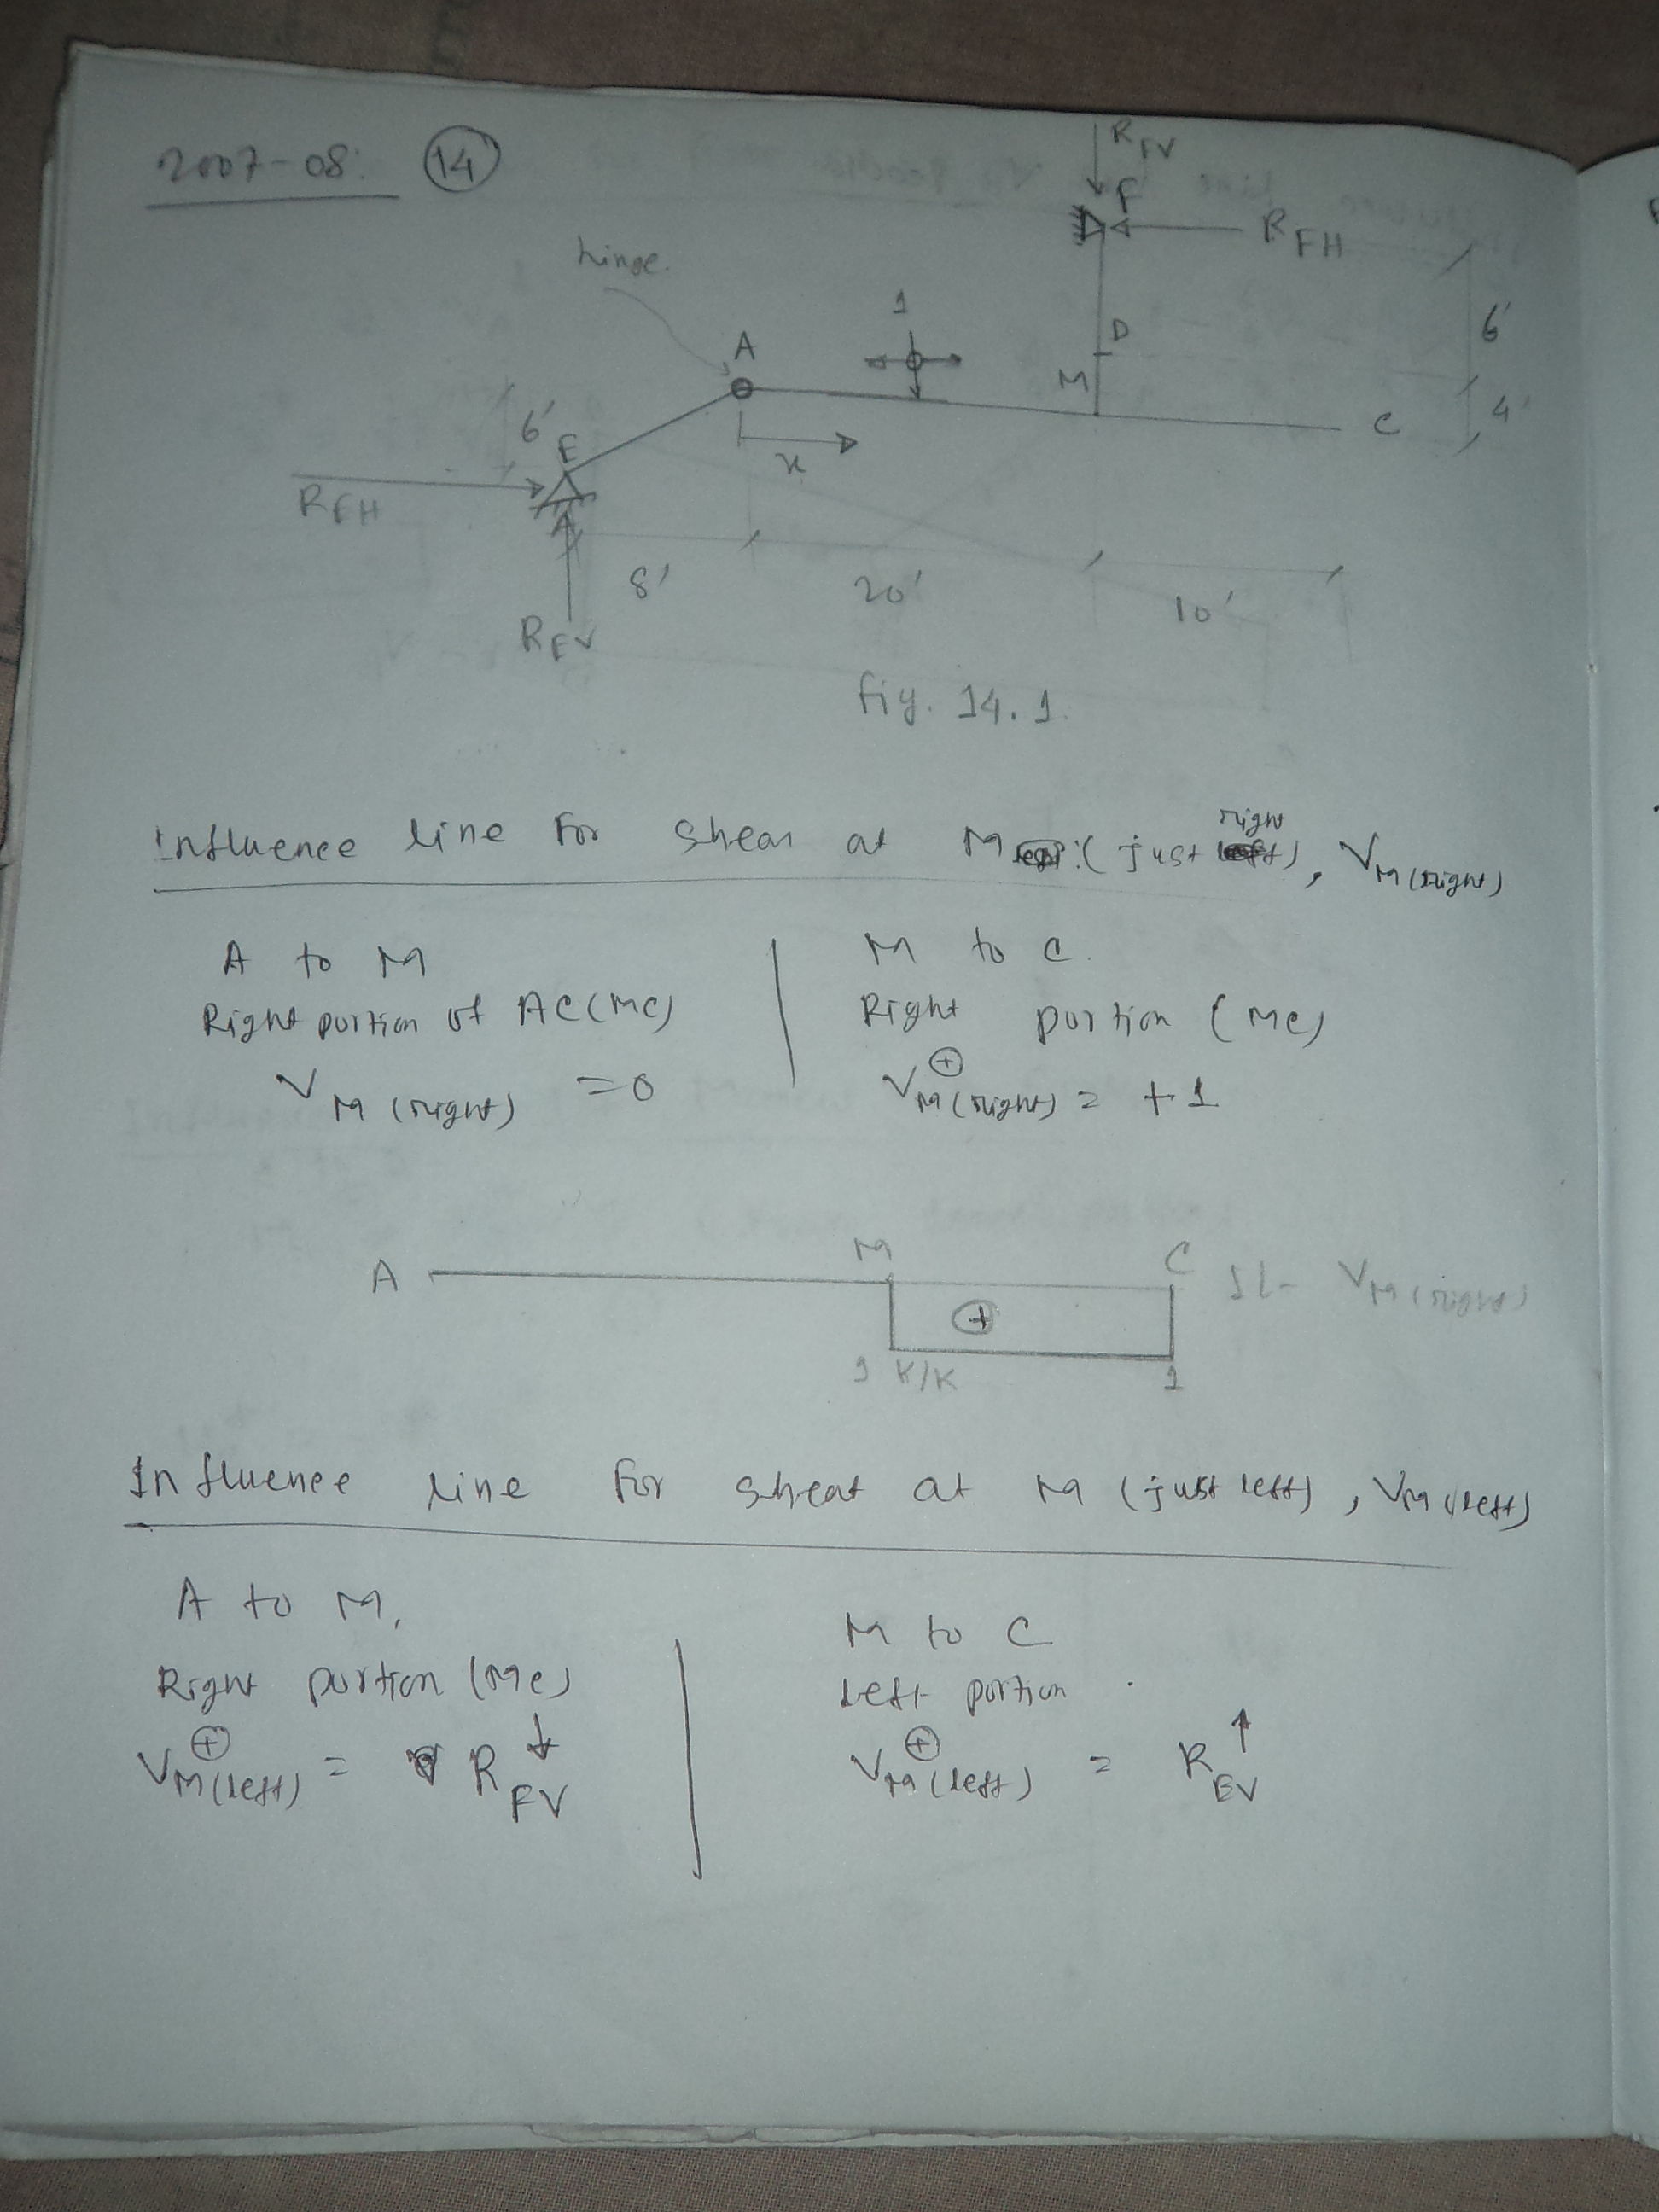 2007-08: 14
R FV
F
R FH
hinge.
6'
1
A
D
M
C
4'
6'
E
x
R EH
8'
20'
10'
R EV
fig. 14.1
Influence line for shear at M (just right), V M(right)
A to M
Right portion of AC (MC)
V M (right) = 0
M to C.
Right portion (MC)
V ⊕ M (right) = +1
A M C IL- V M (right)
⊕
1 K/K 1
Influence line for shear at M (just left), V M (left)
A to M,
Right portion (MC)
V ⊕ M(left) = R FV ↓
M to C
Left portion
V ⊕ M (left) = R EV ↑